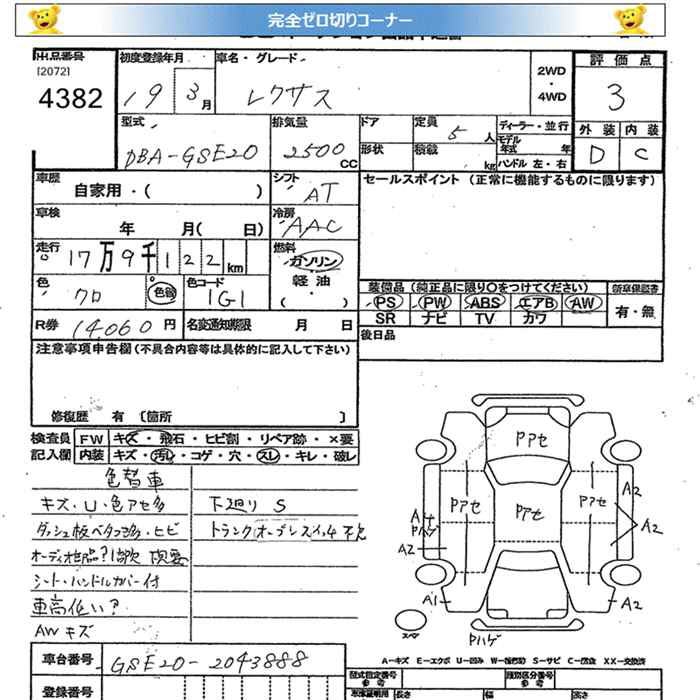 完全ゼロ切りコーナー
出品番号 [2072] 4382
初度登録年月 19 3月
車名・グレード レクサス
2WD・4WD
評価点 3
外装 D 内装 C
型式 DBA-GSE20
排気量 2500 CC
ドア 形状
定員 5人
積載 kg
ディーラー・並行
モデル年式 年
ハンドル 左・右
車歴 自家用・( )
シフト AT
セールスポイント (正常に機能するものに限ります)
車検 年 月( 日)
冷房 AAC
走行 17万9千122km
燃料 ガソリン 軽油・( )
色 クロ 色替
色コード 1G1
装備品 (純正品に限り○をつけてください)
新車保証書
PS PW ABS エアB AW
有・無
SR ナビ TV カワ
R券 14060円 名変通知期限 月 日
後日品
注意事項申告欄(不具合内容等は具体的に記入して下さい)
修復歴 有 〔箇所 〕
検査員記入欄
FW キズ・飛石・ヒビ割・リペア跡・×要
内装 キズ・汚レ・コゲ・穴・スレ・キレ・破レ
色替車
キズ・U・色アセ多
下廻り S
ダッシュ板ベタつき多・ヒビ
トランクオープンスイッチ不良
シート・ハンドルカバー付
車高低い?
AWキズ
車台番号 GSE20-2043888
登録番号
Pアセ
Pアセ Pアセ Pアセ
A2
A2
Pハゲ
A2
A1
A2
スペア
Pハゲ
A=キズ E=エクボ U=凹み W=補修跡 S=サビ C=腐食 XX=交換済
型式指定番号 参考
類別区分番号 参考
長さ 幅 高さ